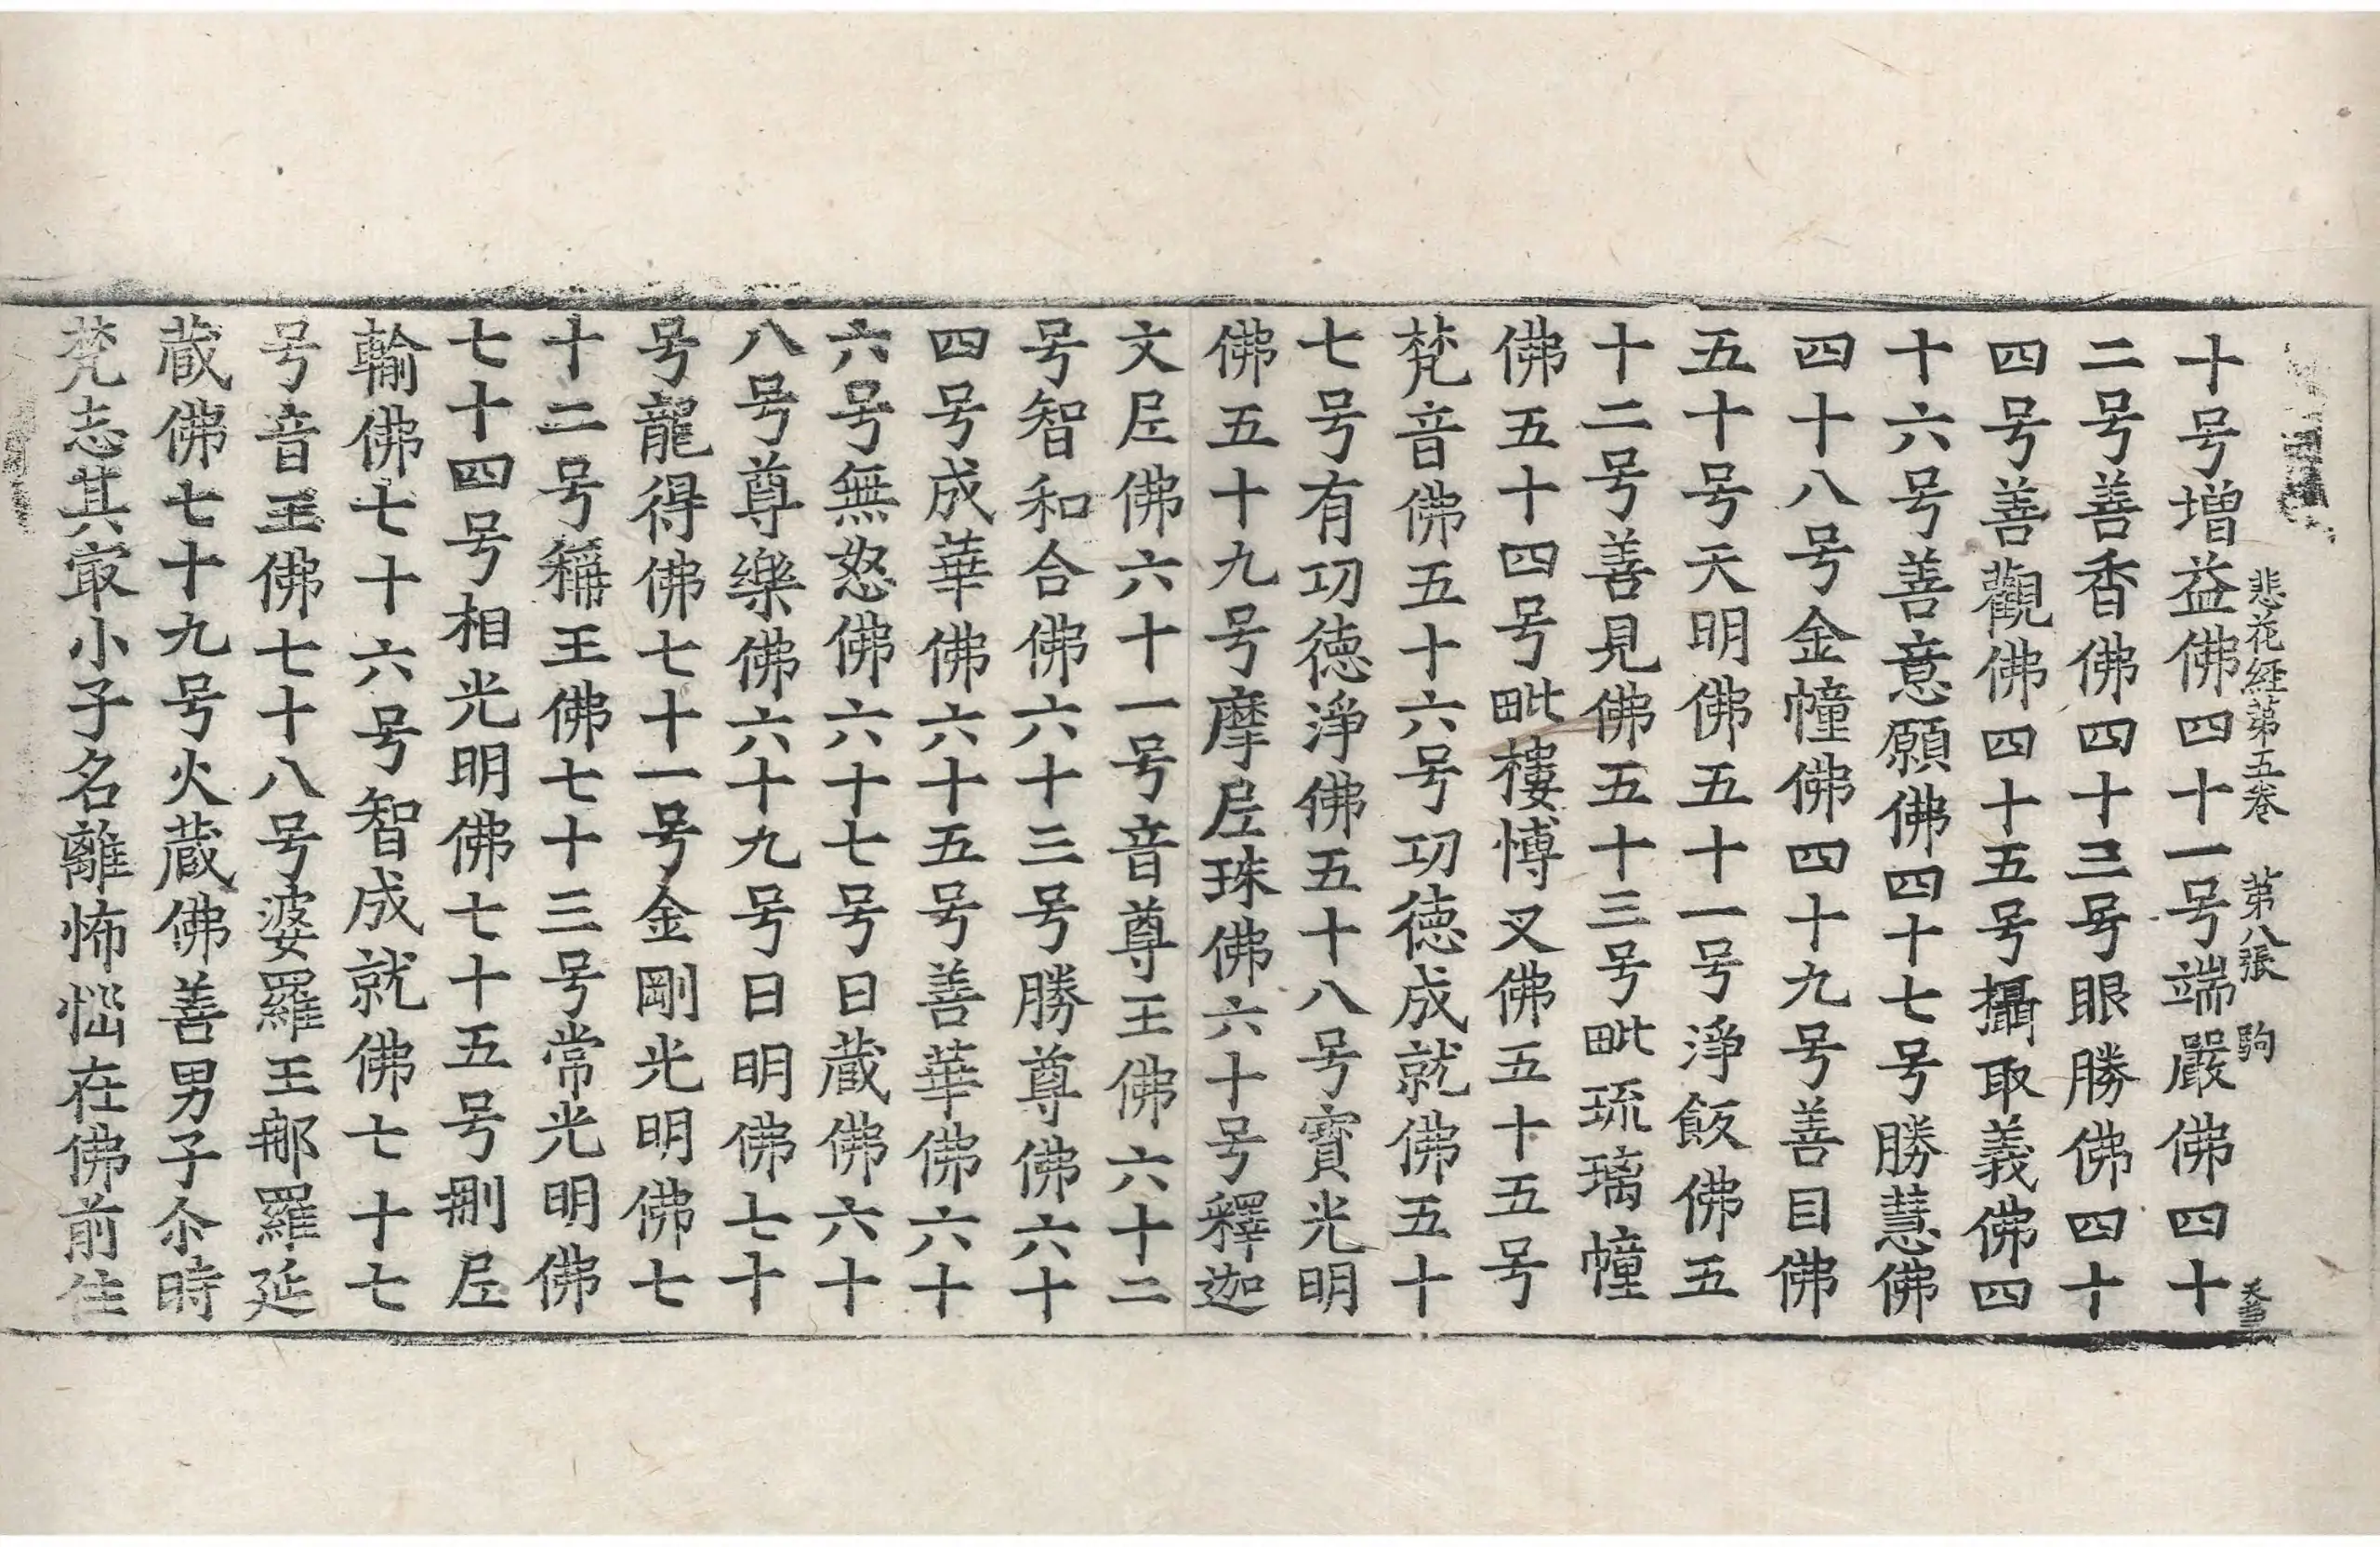 悲花経第五卷 第八張 駒
十号增益佛四十一号端嚴佛四十
二号善香佛四十三号眼勝佛四十
四号善觀佛四十五号攝取義佛四
十六号善意願佛四十七号勝慧佛
四十八号金幢佛四十九号善目佛
五十号天明佛五十一号淨飯佛五
十二号善見佛五十三号毗琉璃幢
佛五十四号毗樓博叉佛五十五号
梵音佛五十六号功徳成就佛五十
七号有功徳淨佛五十八号寶光明
佛五十九号摩尼珠佛六十号釋迦
文尼佛六十一号音尊王佛六十二
号智和合佛六十三号勝尊佛六十
四号成華佛六十五号善華佛六十
六号無怒佛六十七号日蔵佛六十
八号尊樂佛六十九号日明佛七十
号龍得佛七十一号金剛光明佛七
十二号稱王佛七十三号常光明佛
七十四号相光明佛七十五号刪尼
輸佛七十六号智成就佛七十七
号音王佛七十八号婆羅王那羅延
蔵佛七十九号火蔵佛善男子尒時
梵志其㝡小子名離怖惱在佛前住